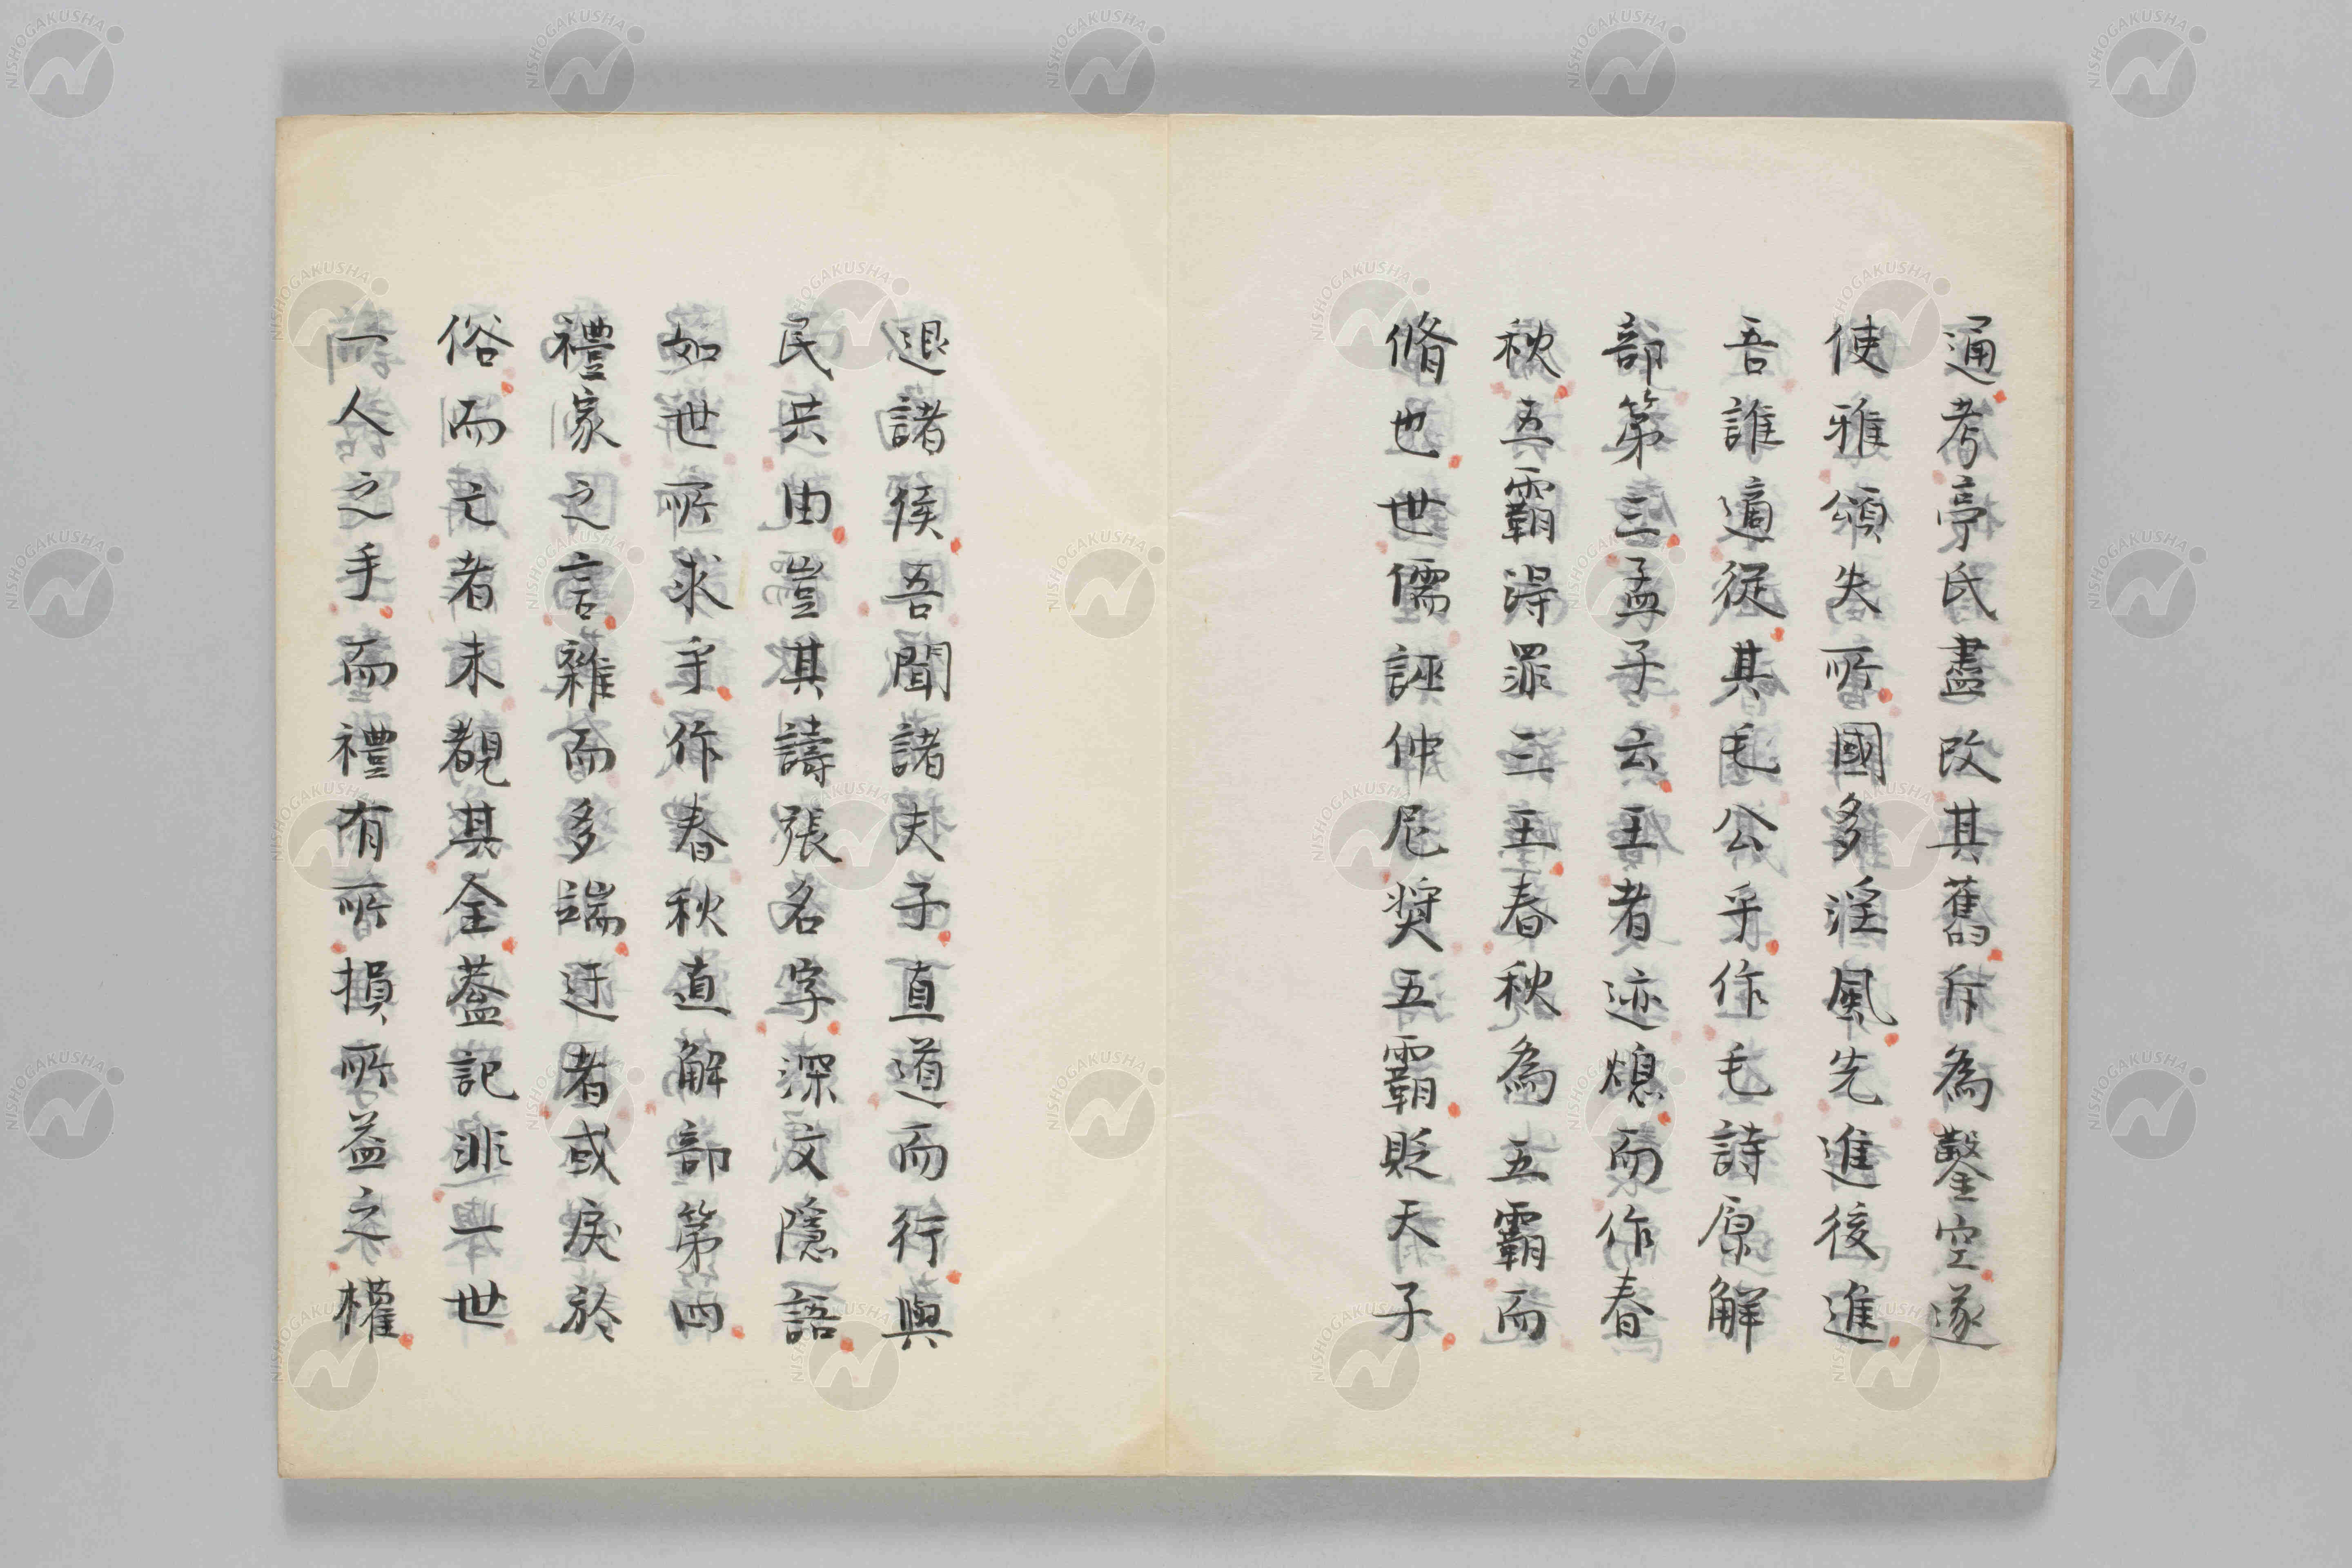 通考亭氏盡改其舊斥為鑿空遂
使雅頌失所國多淫風先進後進
吾誰適從其毛公乎作毛詩原解
部第三孟子云王者迹熄而作春
秋五霸得罪三王春秋為五霸而
脩也世儒誣仲尼奬五霸貶天子
退諸侯吾聞諸夫子直道而行與
民共由豈其譸張名字深文隱語
如世所求乎作春秋直解部第四
禮家之言雜而多端迂者或戾於
俗而亡者未覩其全蓋記非一世
一人之手而禮有所損所益之權
NISHOGAKUSHA